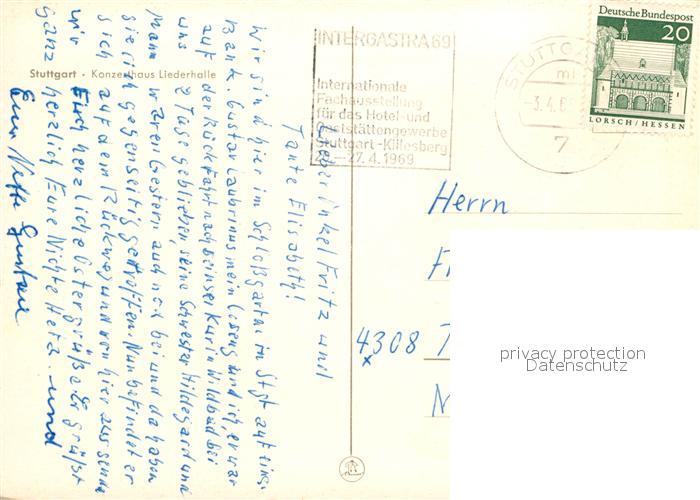 Stuttgart · Konzerthaus Liederhalle
INTERGASTRA 69
Internationale
Fachausstellung
für das Hotel- und
Gaststättengewerbe
Stuttgart-Killesberg
-27.4.1969
STUTTGA
-3.4.6
7
Deutsche Bundespost
20
LORSCH/HESSEN
Lieber Onkel Fritz und
Tante Elisabeth!
Wir sind hier im Schloßgarten in Stgt auf einer
Bank. Gustav mein und ich, er war
auf der Rückfahrt nach seiner Kur in Wildbad bei
uns 2 Tage geblieben, seine Schwester Hildegard und
Mann waren gestern auch noch bei und da haben
sie sich gegenseitig getroffen. Nun befindet er
sich auf dem Rückweg und von hier aus senden
wir Euch herzliche Ostergrüße. Es grüßt
ganz herzlich Eure Nichte Heta. und
Euer Neffe Gustav
Herrn
F
4308
privacy protection
Datenschutz